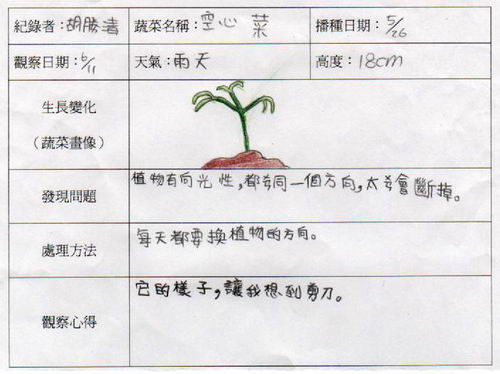 紀錄者：胡勝清 蔬菜名稱：空心菜 播種日期：5/26
觀察日期：6/11 天氣：雨天 高度：18cm
生長變化
（蔬菜畫像）
發現問題 植物有向光性，都同一個方向，太會斷掉。
處理方法 每天都要換植物的方向。
觀察心得 它的樣子，讓我想到剪刀。